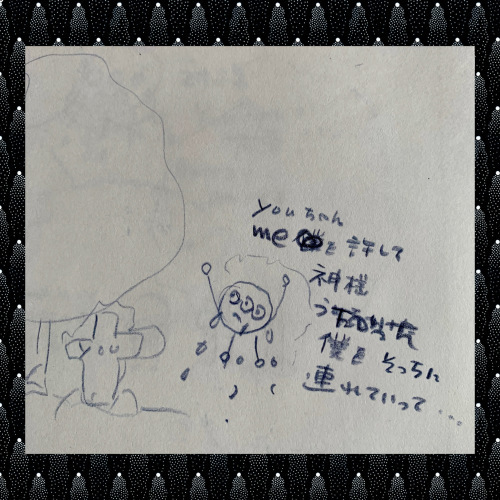 youちゃん
meを許して
神様
僕をそっちに
連れていって...